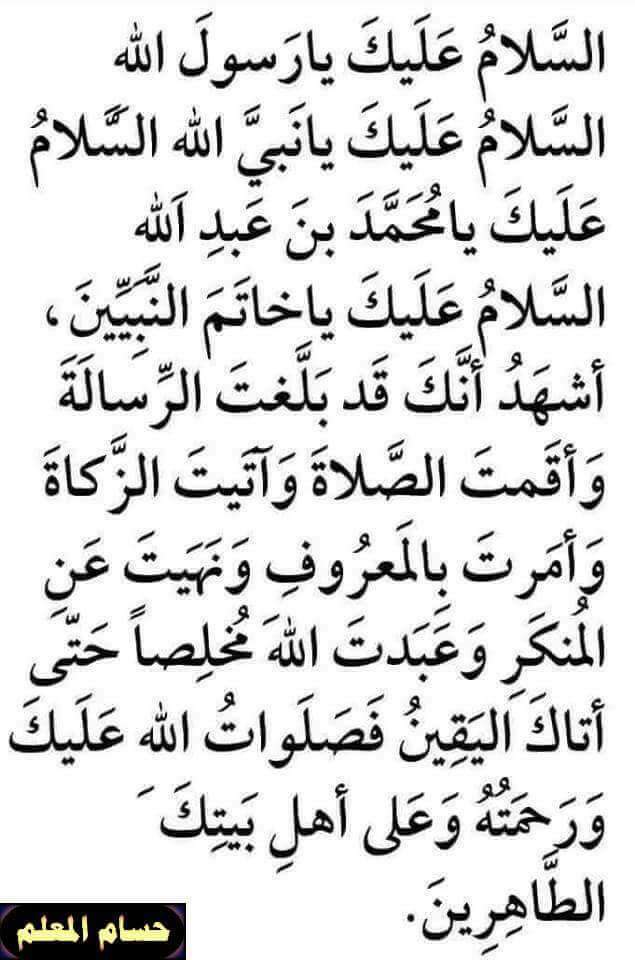 السَّلامُ عَلَيكَ يارَسولَ الله
السَّلامُ عَلَيكَ يانَبيَّ الله السَّلامُ
عَلَيكَ يامُحَمَّدَ بنَ عَبدِ اَلله
السَّلامُ عَلَيكَ ياخاتَمَ النَّبِيّينَ ،
أشهَدُ أنَّكَ قَد بَلَّغتَ الرِّسالَةَ
وَأقَمتَ الصَّلاةَ وَآتَيتَ الزَّكاةَ
وَأمَرتَ بِالمَعرُوفِ وَنَهَيتَ عَنِ
المُنكَرِ وَعَبَدتَ اللهَ مُخلِصاً حَتّى
أتاكَ اليَقِينُ فَصَلَواتُ الله عَلَيكَ
وَرَحمَتُهُ وَعَلى أهلِ بَيتِكَ َ
الطَّاهِرِينَ.
حسام المعلم